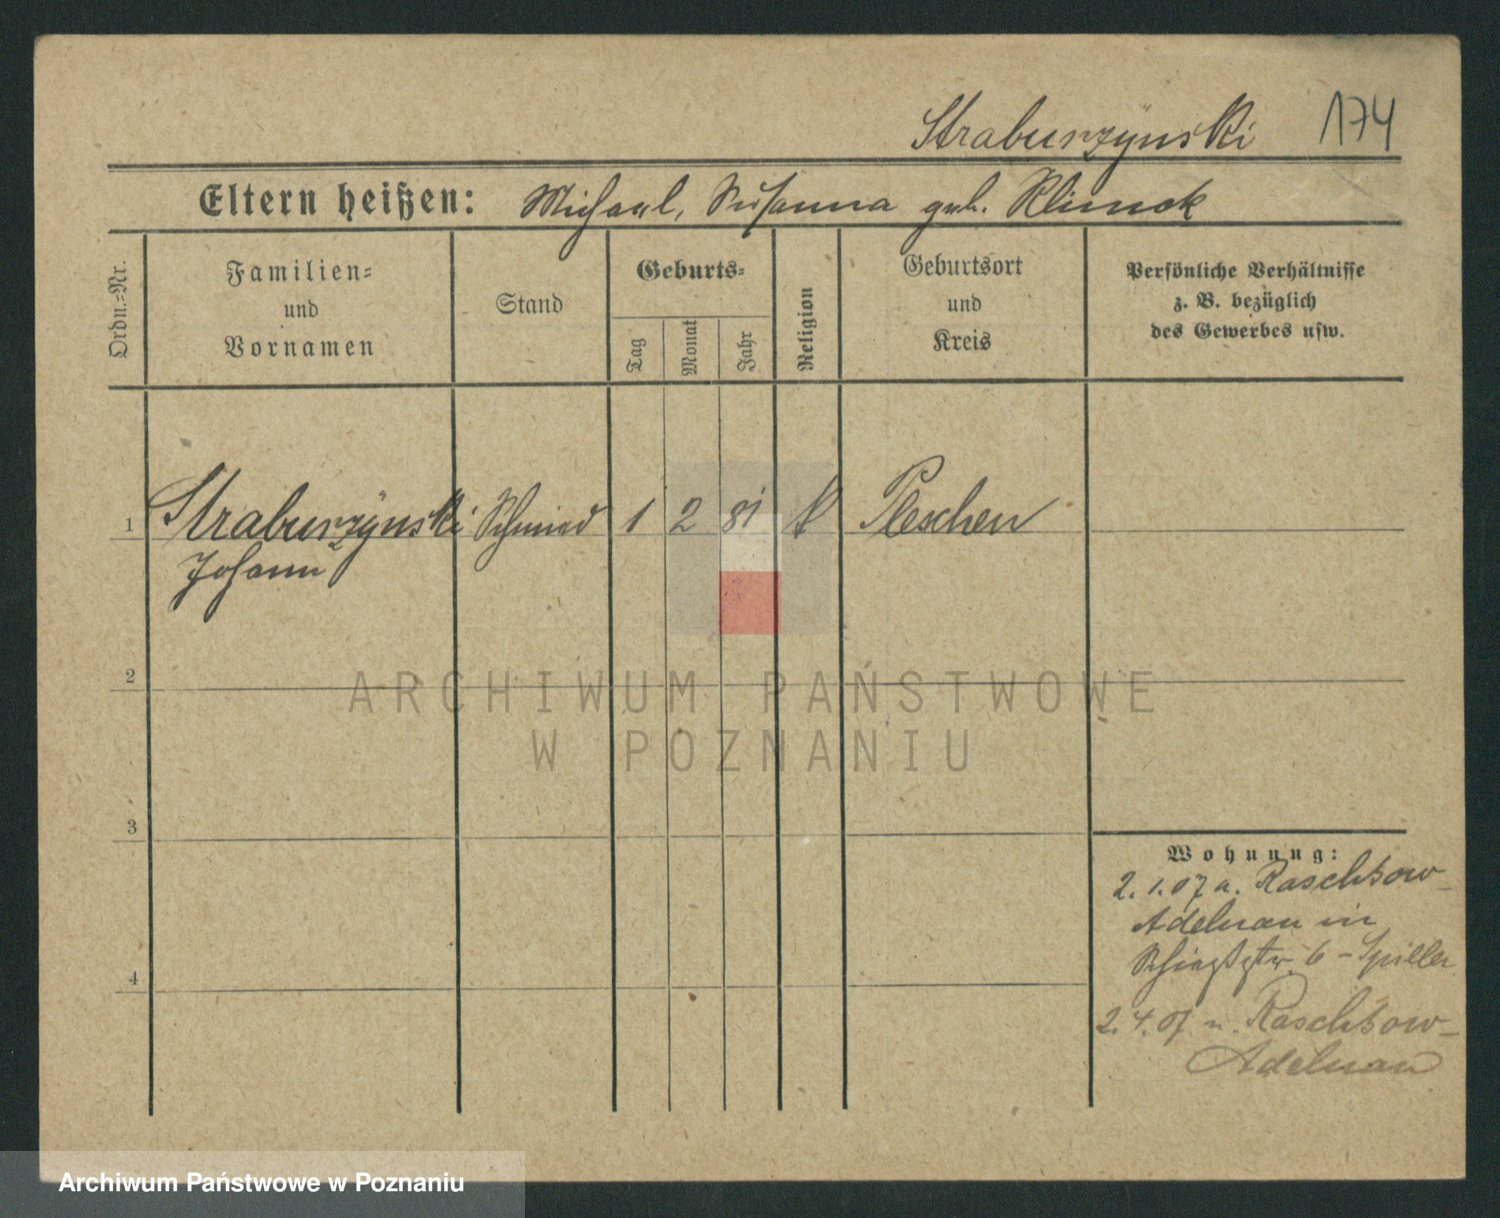 Straburzÿnski 174
Eltern heißen: Michael, Susanna geb. Klimek
Ordn.=Nr.
Familien=
und
Vornamen
Stand
Geburts=
Tag
Monat
Jahr
Religion
Geburtsort
und
Kreis
Persönliche Verhältnisse
z. B. bezüglich
des Gewerbes usw.
1 Straburzÿnski Schmied 1 2 81 k Pleschen
Johann
2
3
4
Wohnung:
2.1.07 a. Raschkow-
Adelnau in
6 - Spiller
2.4.07 n. Raschkow-
Adelnau
ARCHIWUM PAŃSTWOWE
W POZNANIU
Archiwum Państwowe w Poznaniu